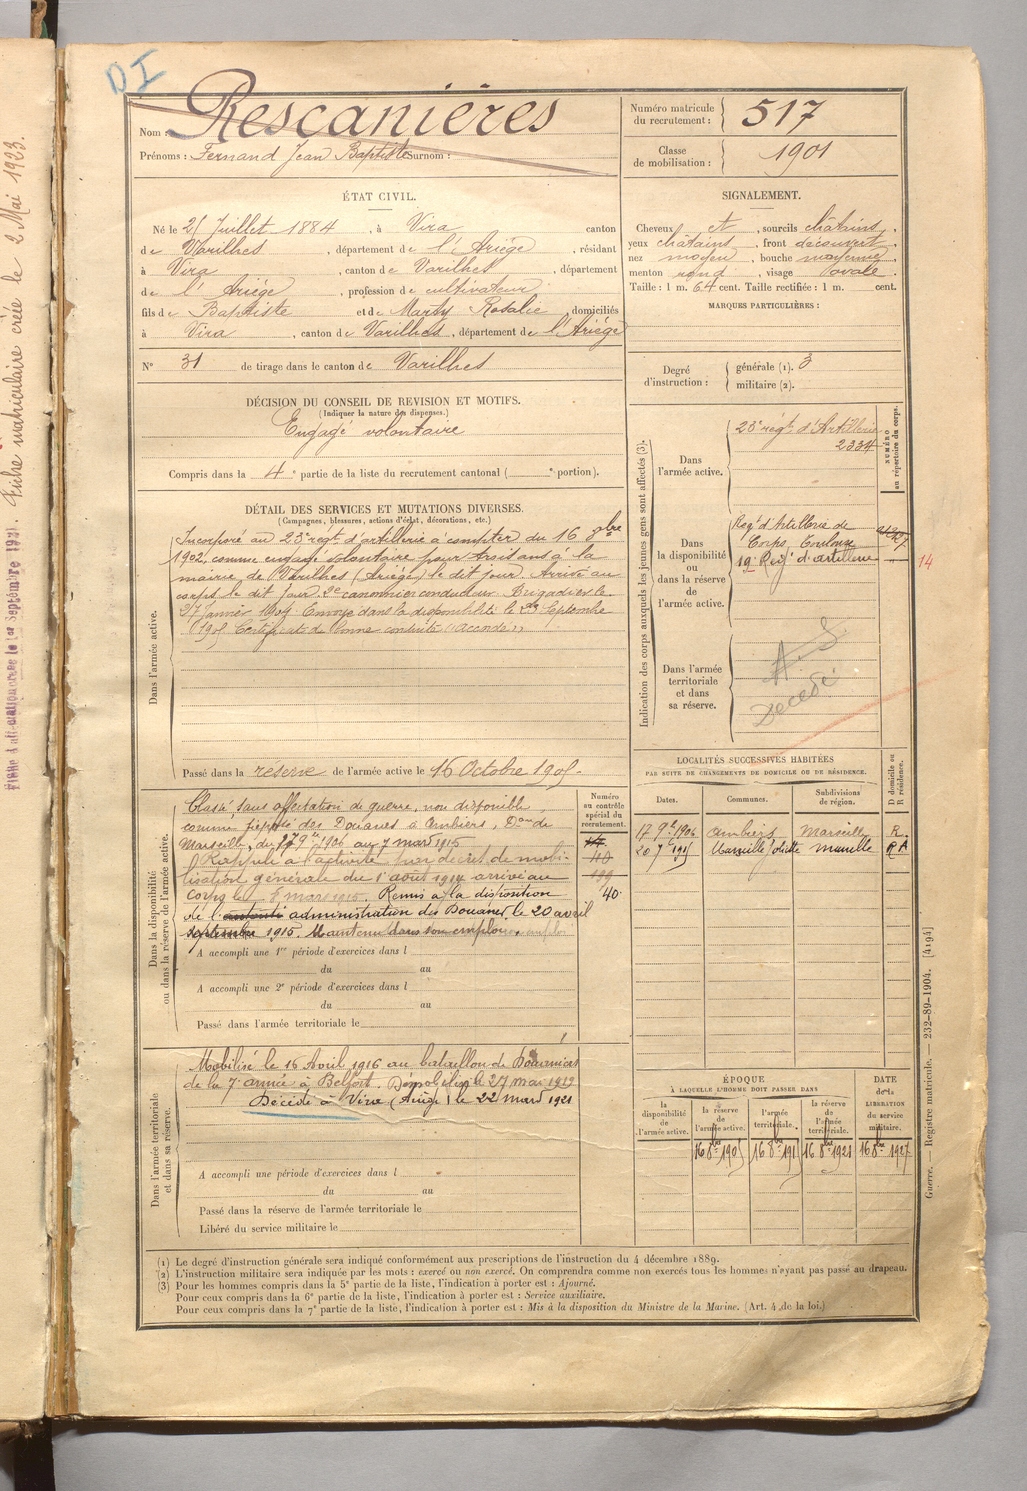 DI
Nom : Rescanières
Prénoms : Fernand Jean Baptiste Surnom :
Numéro matricule du recrutement : 517
Classe de mobilisation : 1901
ÉTAT CIVIL.
Né le 25 Juillet 1884, à Vira canton
de Varilhes, département de l'Ariège, résidant
à Vira, canton de Varilhes, département
de l'Ariège, profession de cultivateur
fils de Baptiste et de Marty Rosalie, domiciliés
à Vira, canton de Varilhes, département de l'Ariège
N° 31 de tirage dans le canton de Varilhes
SIGNALEMENT.
Cheveux et, sourcils châtains,
yeux châtains, front découvert,
nez moyen, bouche moyenne,
menton rond, visage ovale.
Taille : 1 m. 64 cent. Taille rectifiée : 1 m. cent.
MARQUES PARTICULIÈRES :
Degré d'instruction : générale (1). 3
militaire (2).
DÉCISION DU CONSEIL DE REVISION ET MOTIFS.
(Indiquer la nature des dispenses.)
Engagé volontaire
Compris dans la 4e partie de la liste du recrutement cantonal ( e portion).
DÉTAIL DES SERVICES ET MUTATIONS DIVERSES.
(Campagnes, blessures, actions d'éclat, décorations, etc.)
Dans l'armée active.
Incorporé au 23e régt d'artillerie à compter du 16 8bre
1902, comme engagé volontaire pour trois ans à la
mairie de Varilhes (Ariège) le dit jour. Arrivé au
corps le dit jour. 2e canonnier conducteur. Brigadier le
Envoyé dans la disponibilité le 23 Septembre
1905 Certificat de bonne conduite "Accordé"
Passé dans la réserve de l'armée active le 16 Octobre 1905.
Indication des corps auxquels les jeunes gens sont affectés (3).
NUMÉRO au répertoire du corps.
Dans l'armée active.
23e régt d'Artillerie
2334
Dans la disponibilité ou dans la réserve de l'armée active.
Regt d'Artillerie de
Corps, Toulouse
19e Regt d'artillerie
14
Dans l'armée territoriale et dans sa réserve.
Décédé
LOCALITÉS SUCCESSIVES HABITÉES
PAR SUITE DE CHANGEMENTS DE DOMICILE OU DE RÉSIDENCE.
D domicile ou R résidence.
Dates. Communes. Subdivisions de région.
17 9bre 1906 Ambiers Marseille R.
20 7bre 1915 Marseille Joliette Marseille RA
Dans la disponibilité ou dans la réserve de l'armée active.
Numéro au contrôle spécial du recrutement.
Classé sans affectation de guerre, non disponible
comme préposé des Douanes à Ambiers, Don de
Marseille, du 17 9bre 1906 au 7 mars 1915
Rappelé à l'activité par décret de mobi-
lisation générale du 1er août 1914 arrivé au
corps le 8 mars 1915. Remis à la disposition
de l' administration des Douanes le 20 avril
septembre 1915. Maintenu dans son emploi.
40
A accompli une 1re période d'exercices dans l
du au
A accompli une 2e période d'exercices dans l
du au
Passé dans l'armée territoriale le
Dans l'armée territoriale et dans sa réserve.
Mobilisé le 16 Avril 1916 au bataillon de Douaniers
de la 7e armée à Belfort. Démobilisé le 27 mai 1919
Décédé à Vira (Ariège) le 22 mars 1921
A accompli une période d'exercices dans l
du au
Passé dans la réserve de l'armée territoriale le
Libéré du service militaire le
ÉPOQUE
À LAQUELLE L'HOMME DOIT PASSER DANS
la disponibilité de l'armée active.
la réserve de l'armée active.
l'armée territoriale.
la réserve de l'armée territoriale.
DATE de la LIBÉRATION du service militaire.
16 8bre 1905 16 8bre 1915 16 8bre 1921 16 8bre 1927
(1) Le degré d'instruction générale sera indiqué conformément aux prescriptions de l'instruction du 4 décembre 1889.
(2) L'instruction militaire sera indiquée par les mots : exercé ou non exercé. On comprendra comme non exercés tous les hommes n'ayant pas passé au drapeau.
(3) Pour les hommes compris dans la 5e partie de la liste, l'indication à porter est : Ajourné.
Pour ceux compris dans la 6e partie de la liste, l'indication à porter est : Service auxiliaire.
Pour ceux compris dans la 7e partie de la liste, l'indication à porter est : Mis à la disposition du Ministre de la Marine. (Art. 4 de la loi.)
Guerre. — Registre matricule. — 232-89-1904. [4194]
Fiche matriculaire créée le 2 Mai 1923.